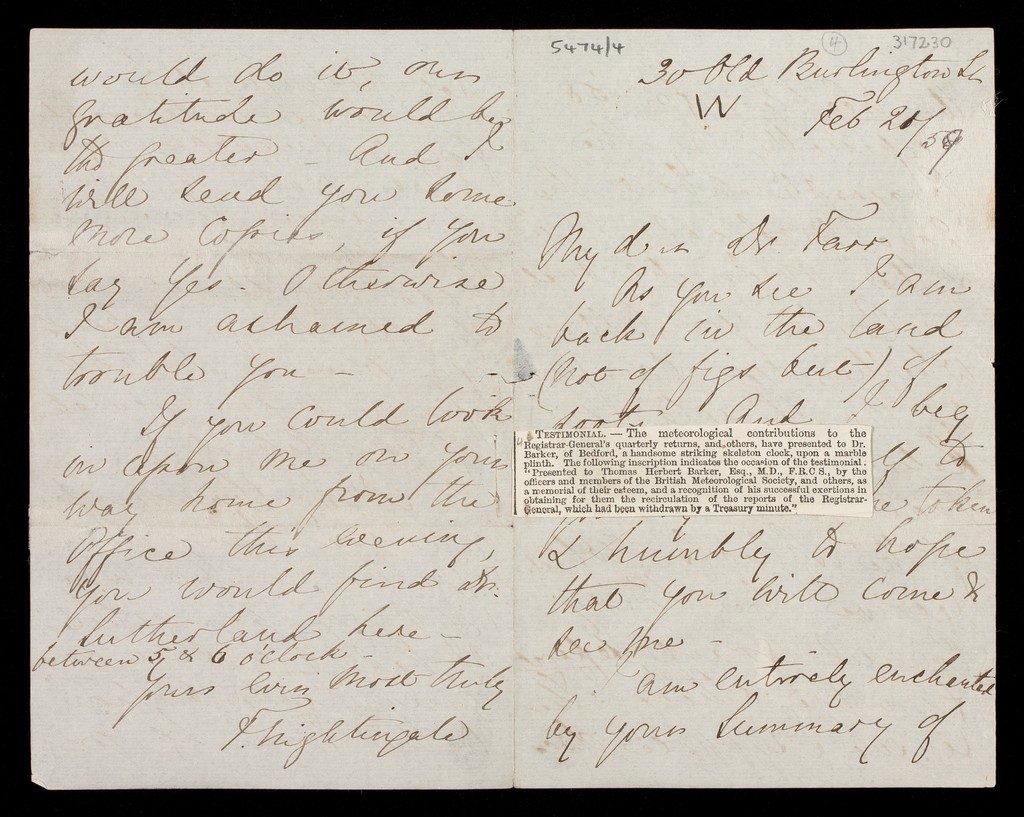 5474/4
4
317230
30 Old Burlington St
W
Feb 20/59
My dear Dr. Farr
As you see I am
back in the land
(not of figs but) of
soots. And I beg
to
token
& humbly to hope
that you will come &
see me -
I am entirely enchanted
by your Summary of
"TESTIMONIAL. — The meteorological contributions to the
Registrar-General's quarterly returns, and others, have presented to Dr.
Barker, of Bedford, a handsome striking skeleton clock, upon a marble
plinth. The following inscription indicates the occasion of the testimonial.
"Presented to Thomas Herbert Barker, Esq., M.D., F.R.C.S., by the
officers and members of the British Meteorological Society, and others, as
a memorial of their esteem, and a recognition of his successful exertions in
obtaining for them the recirculation of the reports of the Registrar-
General, which had been withdrawn by a Treasury minute."
would do it, our
gratitude would be
the greater - And I
will send you some
more Copies, if you
say Yes - Otherwise
I am ashamed to
trouble you -
If you could look
in upon me on your
way home from the
Office this evening,
you would find Dr.
Sutherland here -
between 5 & 6 o'clock -
Yours ever most truly
F. Nightingale